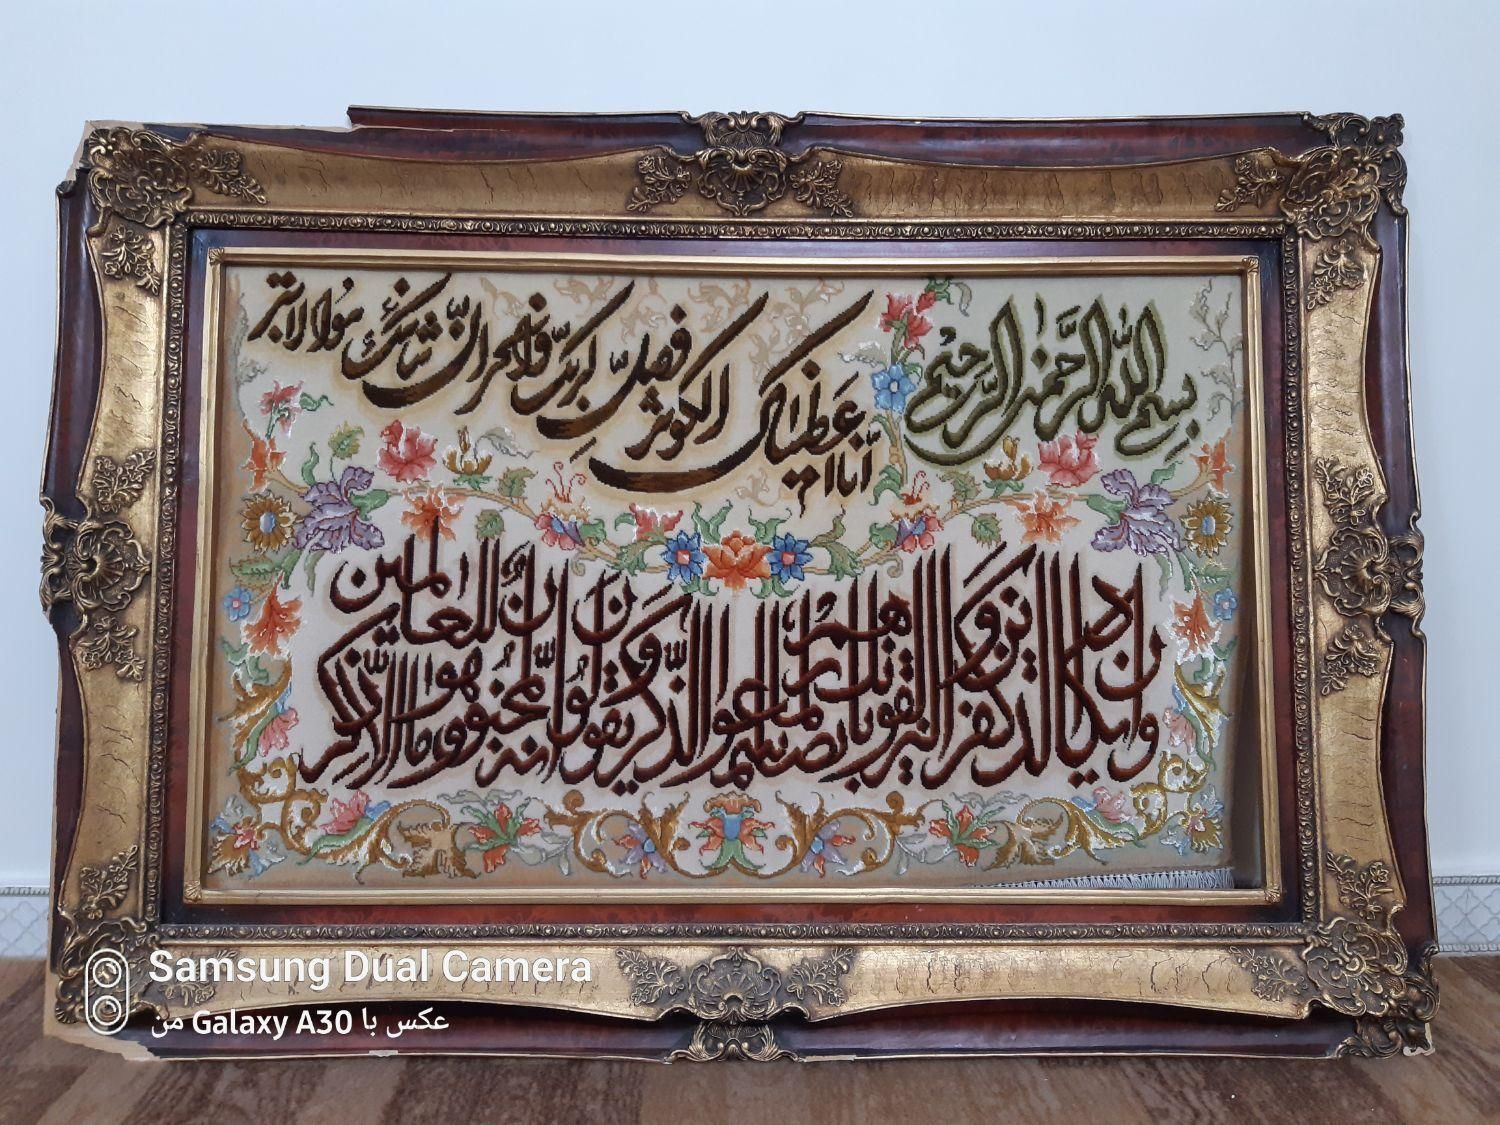 بسم الله الرحمن الرحیم
انا اعطیناک الکوثر فصل لربک وانحر ان شانئک هو الابتر
وان یکاد الذین کفروا لیزلقونک بابصارهم لما سمعوا الذکر ویقولون انه لمجنون وما هو الا ذکر للعالمین
Samsung Dual Camera
عکس با Galaxy A30 من